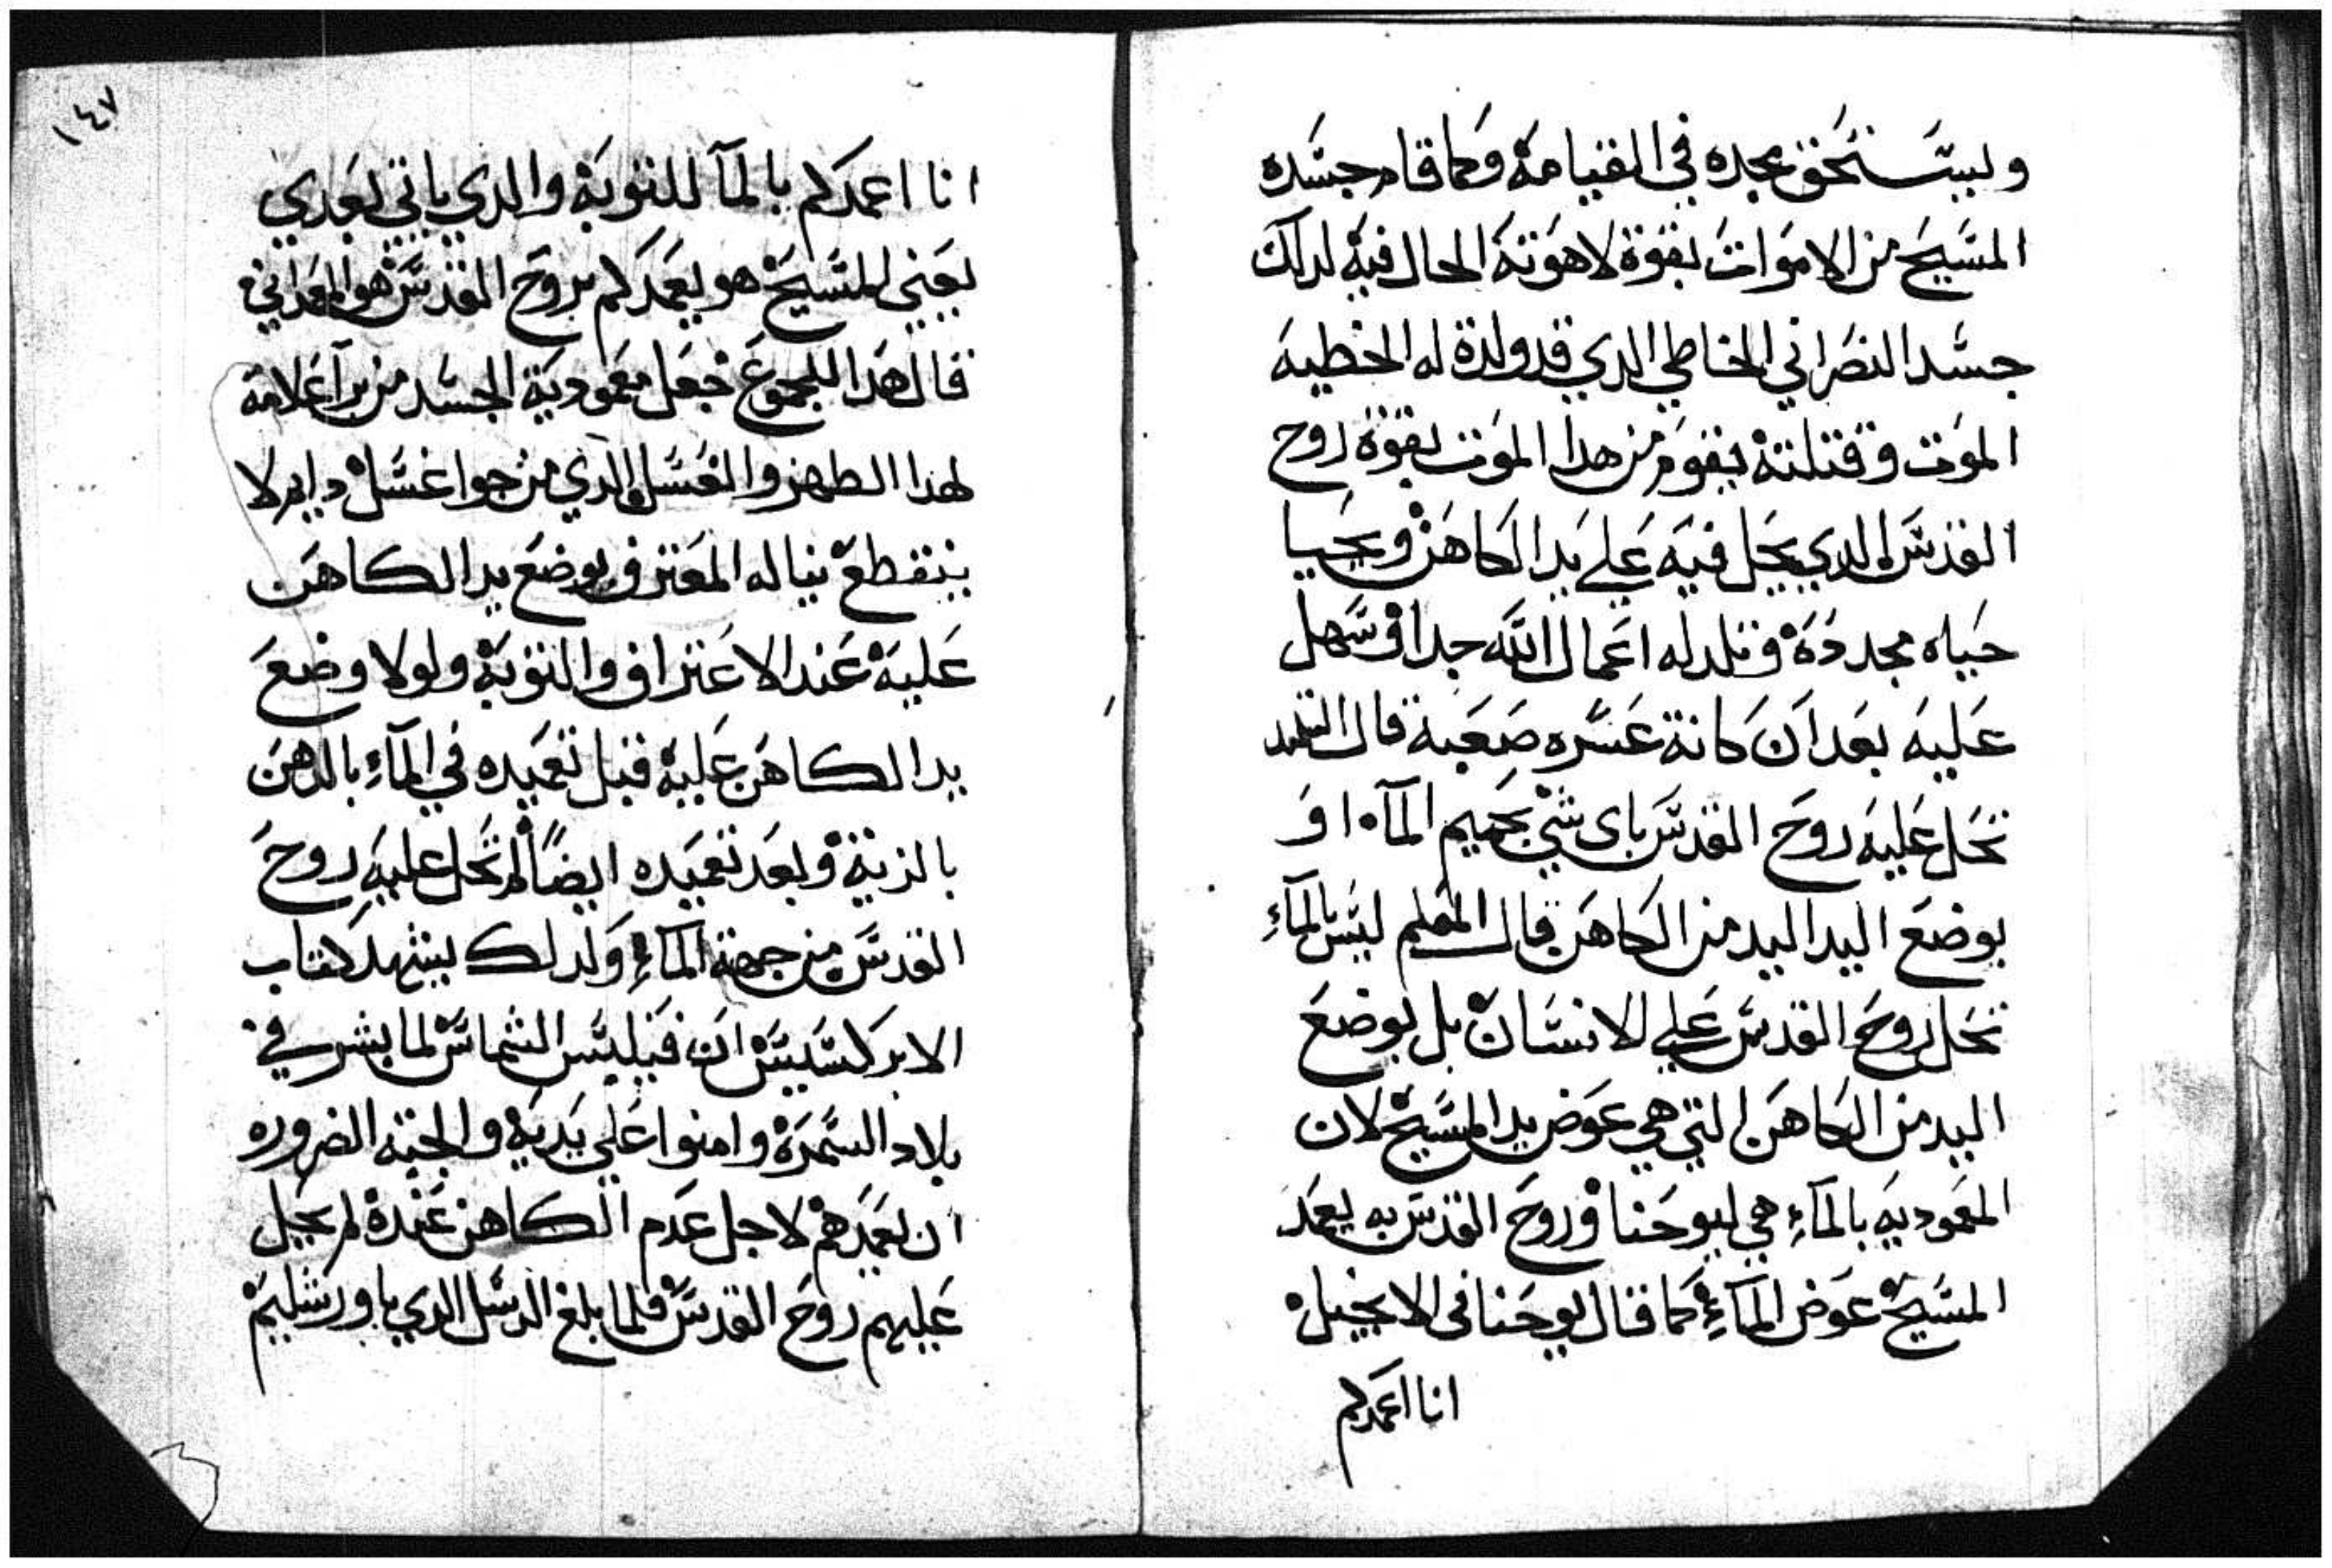 ويستحق مجده في القيامة وكما قام جسده
المسيح من الاموات بقوة لاهوته الحال فيه لدلك
جسد النصراني الخاطي الدي قد ولدة له الخطيه
الموت وقتلته يقوم من هدا الموت بقوة روح
القدس الدي يحل فيه علي يد الكاهن ويحيا
حياه مجدده وتلد له اعمال الله جدا وسهل
عليه بعد ان كانة عسره صعبة قال التلميد
تحل عليه روح القدس باى شي بحميم الماء او
بوضع اليد اليد من الكاهن قال المعلم ليس بالماء
تحل روح القدس علي الانسان بل بوضع
اليد من الكاهن التي هي عوض يد المسيح لان
المعموديه بالماء هي ليوحنا وروح القدس به يعمد
المسيح عوض الماء كما قال يوحنا فى الانجيل
انا اعمدكم
١٤٧
انا اعمدكم بالماء للتوبة والدي ياتي بعدي
يعني المسيح هو يعمدكم بروح القدس هو المعمداني
قال هدا للجموع جعل معمودية الجسد من برا علامة
لهدا الطهر والغسل الدي من جوا غسل دايم لا
ينقطع يناله المعترف بوضع يد الكاهن
عليه عند الاعتراف والتوبة ولولا وضع
يد الكاهن عليه قبل تعميده في الماء بالدهن
بالزيت وبعد تعميده ايضا لم تحل عليه روح
القدس من جهة الماء ولدلك يشهد كتاب
الابركسيس ان فيلبس الشماس لما بشر في
بلاد السمرة وامنوا علي يديه والجته الضروره
ان يعمدهم لاجل عدم الكاهن عنده لم يحل
عليهم روح القدس فلما بلغ الرسل الدي باورشليم